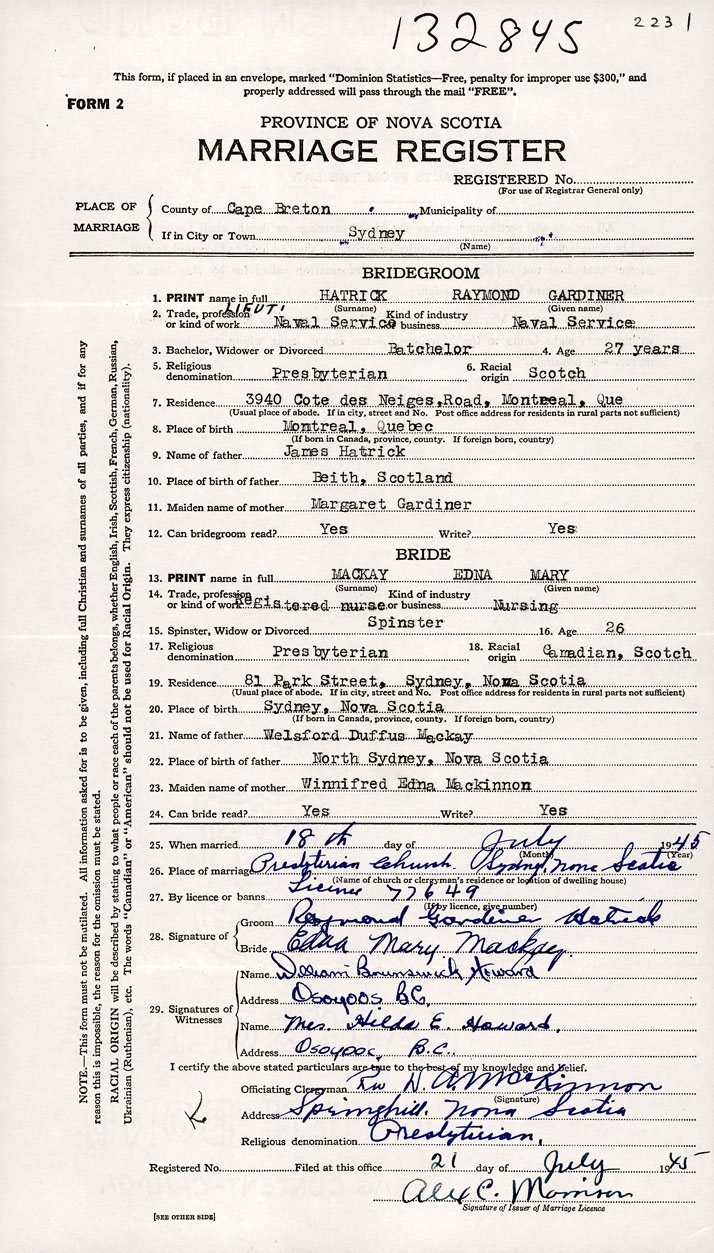 132845
223 1
This form, if placed in an envelope, marked "Dominion Statistics—Free, penalty for improper use $300," and
properly addressed will pass through the mail "FREE".
FORM 2
PROVINCE OF NOVA SCOTIA
MARRIAGE REGISTER
REGISTERED No.
(For use of Registrar General only)
PLACE OF MARRIAGE
County of Cape Breton Municipality of
If in City or Town Sydney
(Name)
BRIDEGROOM
1. PRINT name in full HATRICK RAYMOND GARDINER
(Surname) (Given name)
LIEUT.
2. Trade, profession or kind of work Naval Service Kind of industry or business Naval Service
3. Bachelor, Widower or Divorced Batchelor 4. Age 27 years
5. Religious denomination Presbyterian 6. Racial origin Scotch
7. Residence 3940 Cote des Neiges,Road, Montreal, Que
(Usual place of abode. If in city, street and No. Post office address for residents in rural parts not sufficient)
8. Place of birth Montreal, Quebec
(If born in Canada, province, county. If foreign born, country)
9. Name of father James Hatrick
10. Place of birth of father Beith, Scotland
11. Maiden name of mother Margaret Gardiner
12. Can bridegroom read? Yes Write? Yes
BRIDE
13. PRINT name in full MACKAY EDNA MARY
(Surname) (Given name)
14. Trade, profession or kind of work Registered nurse Kind of industry or business Nursing
15. Spinster, Widow or Divorced Spinster 16. Age 26
17. Religious denomination Presbyterian 18. Racial origin Canadian, Scotch
19. Residence 81 Park Street, Sydney, Nova Scotia
(Usual place of abode. If in city, street and No. Post office address for residents in rural parts not sufficient)
20. Place of birth Sydney, Nova Scotia
(If born in Canada, province, county. If foreign born, country)
21. Name of father Welsford Duffus Mackay
22. Place of birth of father North Sydney, Nova Scotia
23. Maiden name of mother Winnifred Edna Mackinnon
24. Can bride read? Yes Write? Yes
25. When married 18th day of July 1945
(Month) (Year)
26. Place of marriage Presbyterian Church Sydney, Nova Scotia
(Name of church or clergyman's residence or location of dwelling house)
27. By licence or banns Licence 77649
(If by licence, give number)
28. Signature of
Groom Raymond Gardiner Hatrick
Bride Edna Mary Mackay
29. Signatures of Witnesses
Name William Brunswick Howard
Address Osoyoos BC.
Name Mrs. Hilda E. Howard.
Address Osoyoos, B.C.
I certify the above stated particulars are true to the best of my knowledge and belief.
Officiating Clergyman Rev. D. A. MacKinnon
(Signature)
Address Springhill. Nova Scotia
Religious denomination Presbyterian.
Registered No. Filed at this office 21 day of July 1945
Alex C. Morrison
Signature of Issuer of Marriage Licence
[SEE OTHER SIDE]
NOTE.—This form must not be mutilated. All information asked for is to be given, including full Christian and surnames of all parties, and if for any
reason this is impossible, the reason for the omission must be stated.
RACIAL ORIGIN will be described by stating to what people or race each of the parents belongs, whether English, Irish, Scottish, French, German, Russian,
Ukrainian (Ruthenian), etc. The words "Canadian" or "American" should not be used for Racial Origin. They express citizenship (nationality).